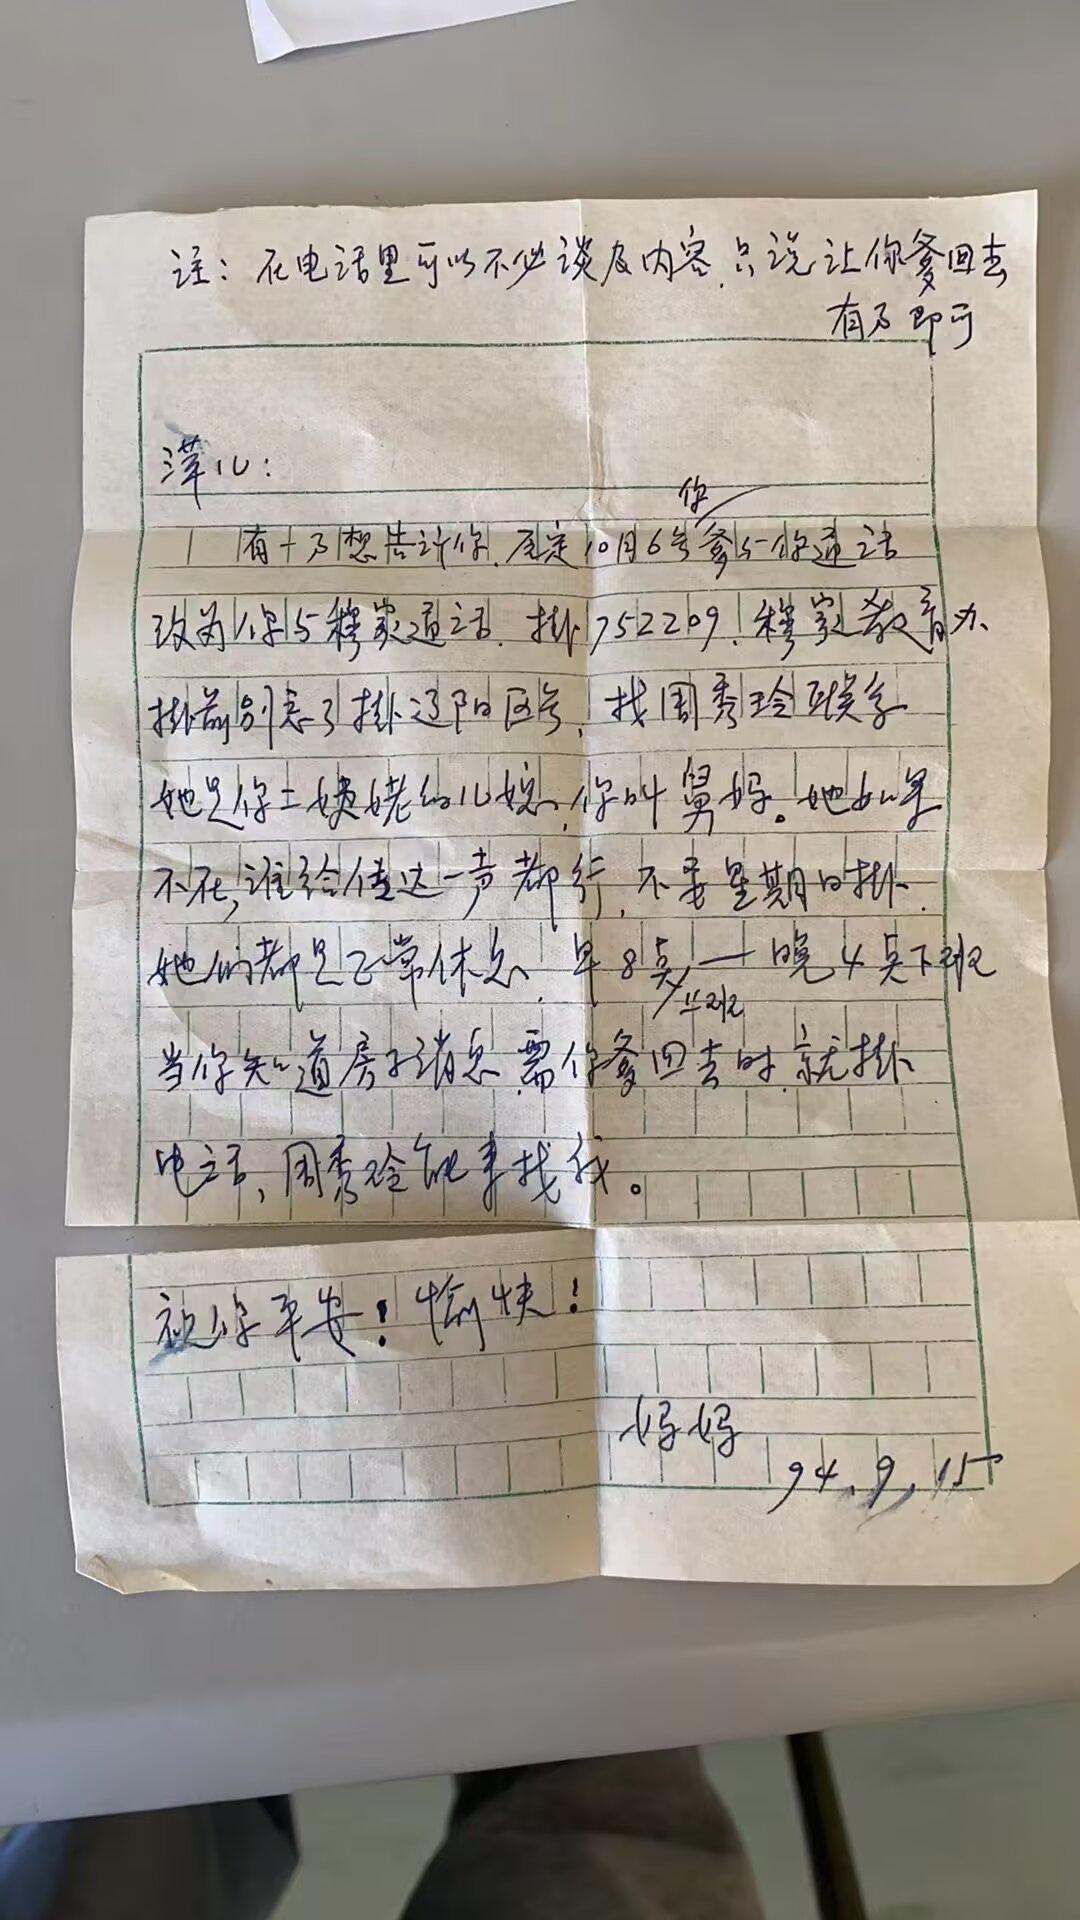 注：在电话里可以不必谈及内容，只说让你爹回去
有事即可
萍儿：
有一事想告诉你，原定10月6号你爹与你通话
改为你与穆家通话，挂752209，穆家教育办
挂前别忘了挂辽阳区号，找周秀玲联系
她是你二姨姥的儿媳，你叫舅妈。她如果
不在，谁给传达一声都行，不要星期日挂，
她们都是正常休息，早8点上班—晚4点下班
当你知道房子消息，需你爹回去时，就挂
电话，周秀玲能来找我。
祝你平安！愉快！
妈妈
94.9.15